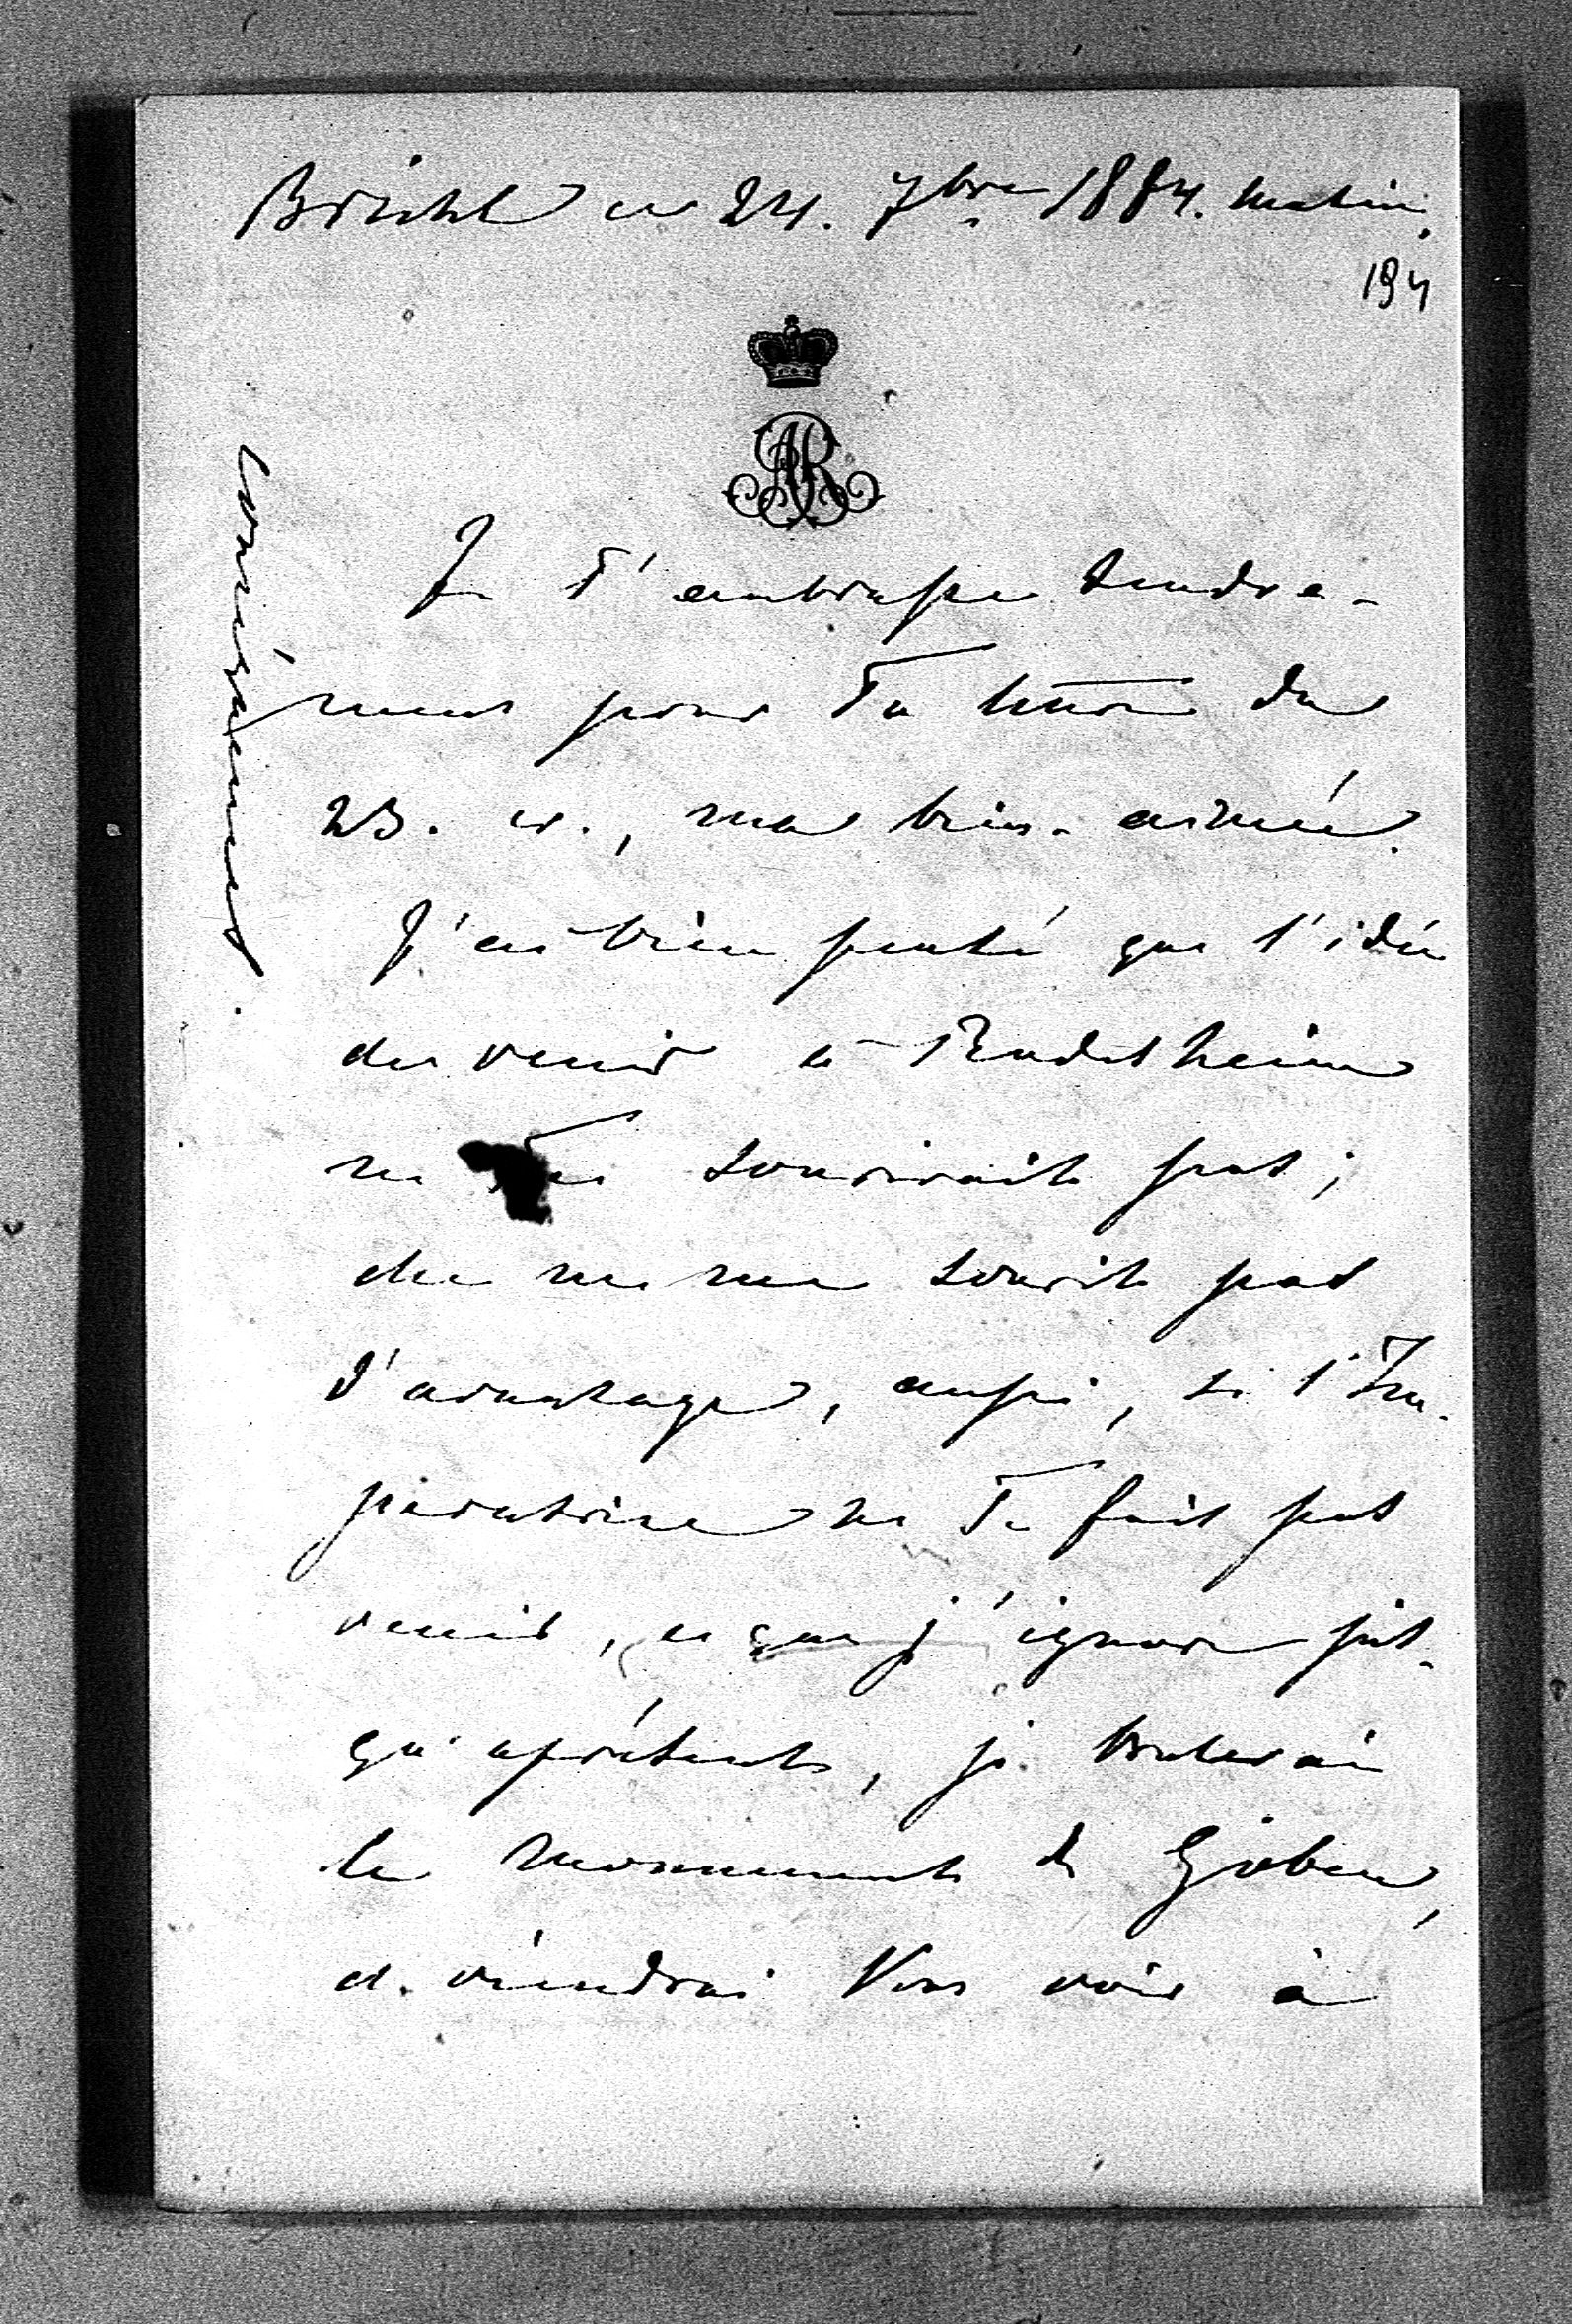 Brühl ce 24. 7bre 1884. matin.
194
AR
Je T'embrasse tendre-
ment pour Ta lettre du
23. cr., ma bien-aimée.
J'ai bien pensé que l'idée
de venir à Rudesheim
ne Te sourirait pas;
elle ne me sourit pas
d'avantage, aussi, si l'Im-
pératrice ne Te fait pas
venir, ce que j'ignore jus-
qu'aprésent, je
le monument de Göben,
et viendrai Vous voir à